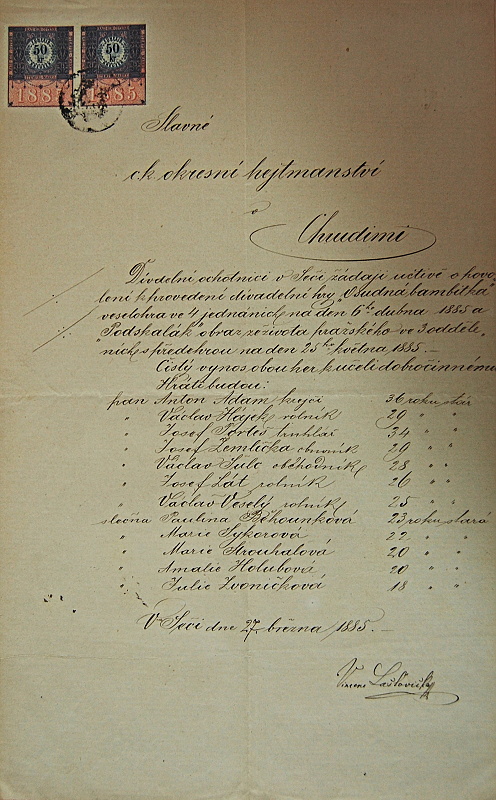 50
50
188
1885
Slavné
c.k. okresní hejtmanství
v
Chrudimi
Divadelní ochotníci v Seči žádají uctivě o povo-
lení k provedení divadelní hry „Osudná bambitka“
veselohra ve 4 jednáních, na den 6ho dubna 1885 a
„Podskalák“ obraz ze života pražského ve 3 odděle-
ních s předehrou na den 25ho května 1885. —
Čistý výnos obou her k účeli dobročinnému
Hráti budou:
pan Anton Adam krejčí 36 roků stár
„ Václav Hájek rolník 29 „ „
„ Josef truhlář 34 „ „
„ Josef Zemlička obuvník 29 „ „
„ Václav Šulc obchodník 28 „ „
„ Josef Lát rolník 26 „ „
„ Václav Veselý rolník 25 „ „
slečna Paulina Běhounková 23 roků stará
„ Marie Sykorová 22 „ „
„ Marie Strouhalová 20 „ „
„ Amalie Holubová 20 „ „
„ Julie Zvoníčková 18 „ „
V Seči dne 27. března 1885. —